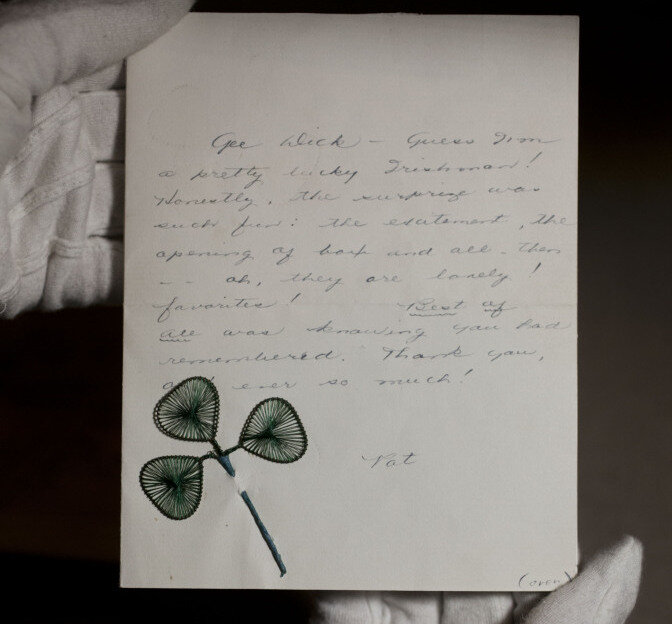 Gee Dick - Guess I'm
a pretty lucky Irishman!
Honestly, the surprize was
such fun: the excitement, the
opening of box and all - then
-- oh, they are lovely!
favorites! Best of
all was knowing you had
remembered. Thank you,
ever so much!
Pat
(over)